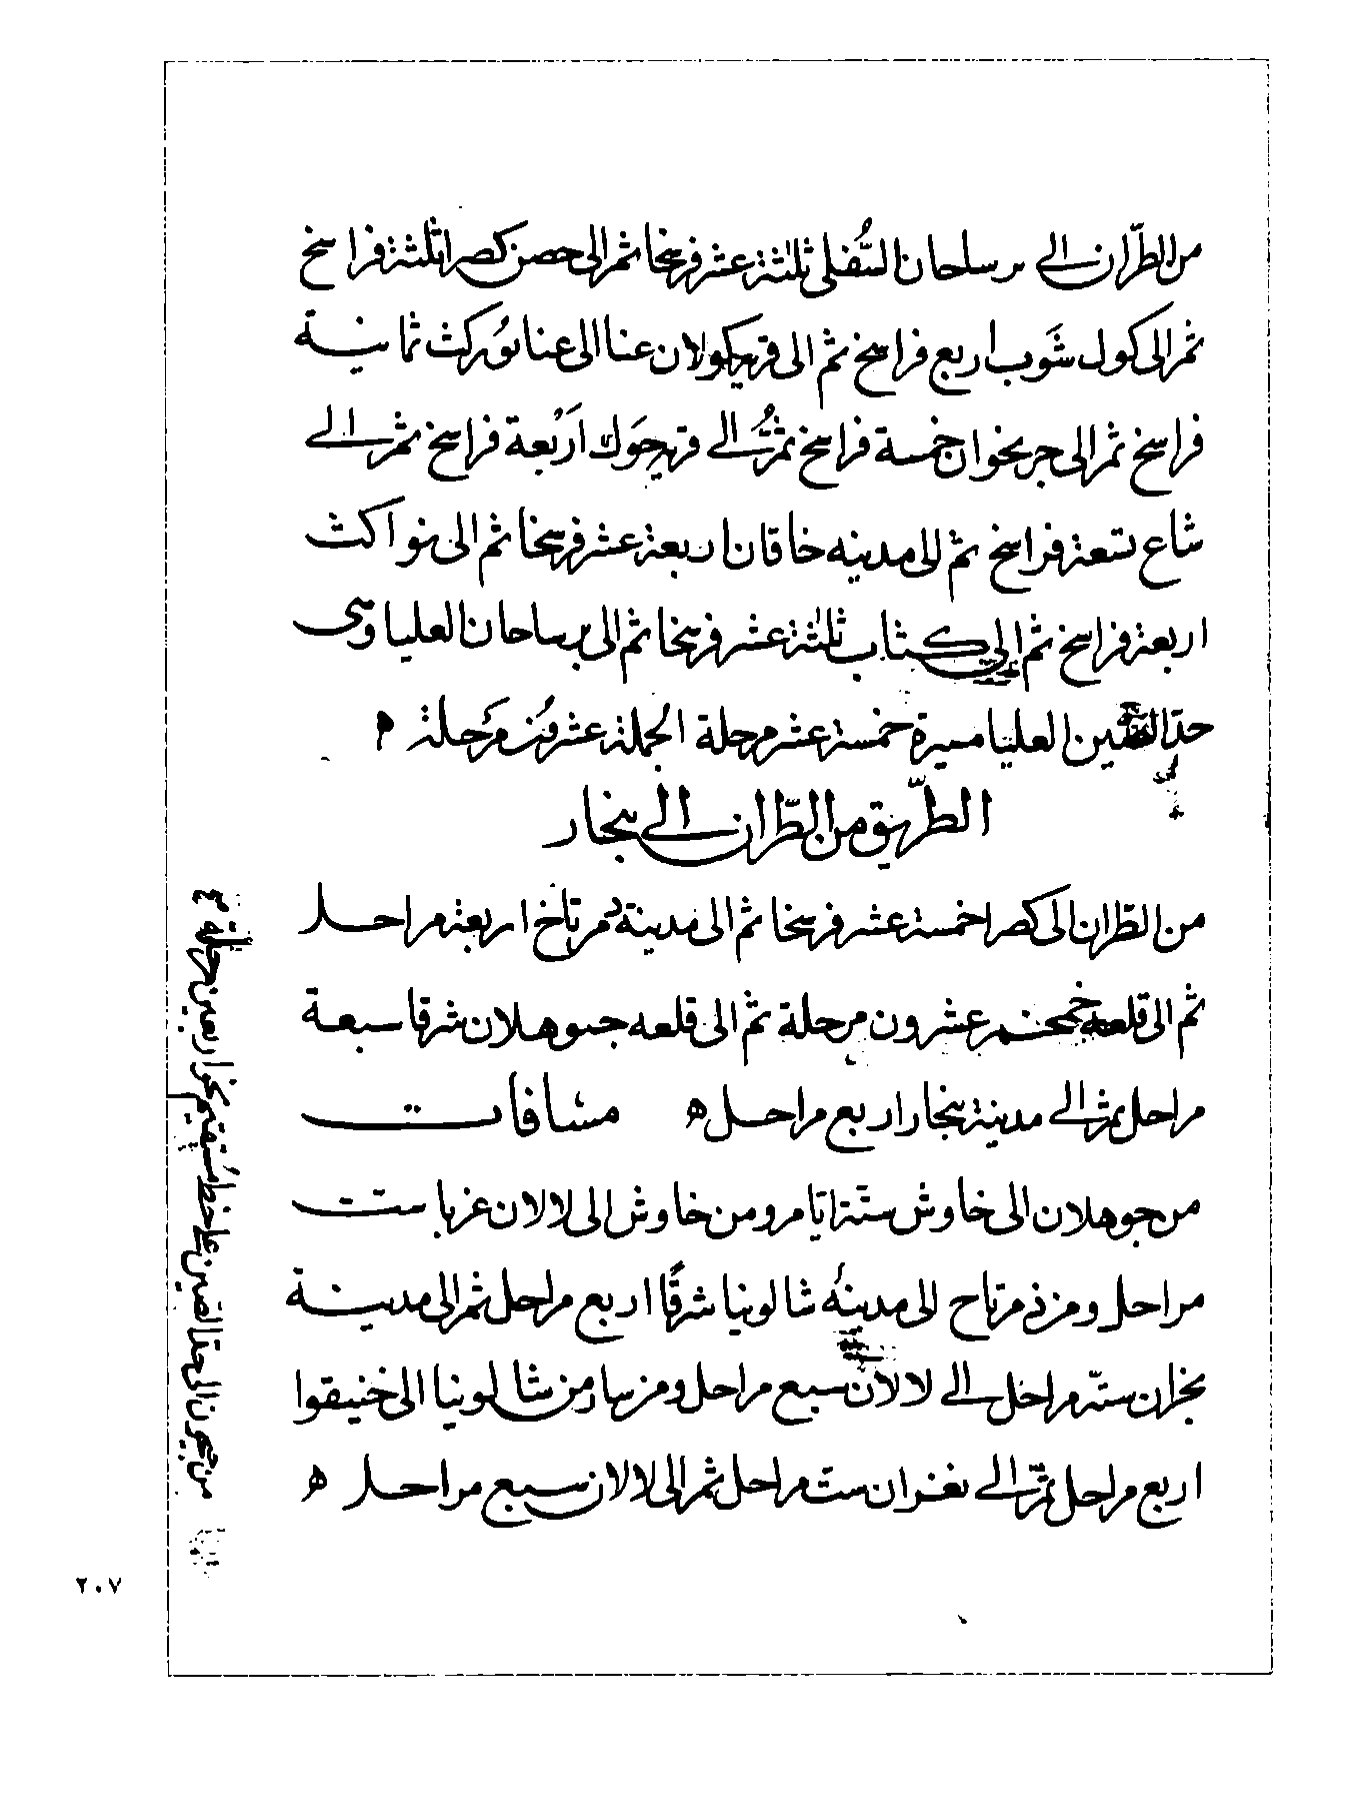 من الطران الى برسلحان السفلى ثلثة عشر فرسخا ثم الى حصن كصرا ثلثة فراسخ
ثم الى كول شوب اربع فراسخ ثم الى قرية كولان عنا الى عنا بوركث ثمانية
فراسخ ثم الى جربخوان خمسة فراسخ ثم الى قرية جوك اربعة فراسخ ثم الى
شاع تسعة فراسخ ثم الى مدينه خاقان اربعة عشر فرسخا ثم الى نواكث
اربعة فراسخ ثم الى كثاب ثلثة عشر فرسخا ثم الى برساحان العليا وهى
حد الصين العليا مسيرة خمسة عشر مرحلة الجملة عشرون مرحلة ه
الطريق من الطران الى بنجار
من الطران الى كصرا خمسة عشر فرسخا ثم الى مدينة دمرتاخ اربعة مراحل
ثم الى قلعة خمخم عشرون مرحلة ثم الى قلعه جوهلان شرقا سبعة
مراحل ثم الى مدينة بنجار اربع مراحل ه مسافات
من جوهلان الى خاوش ستة ايام ومن خاوش الى لالان غربا ست
مراحل ومن ذمرتاح الى مدينة شالونيا شرقا اربع مراحل ثم الى مدينة
بخران ستة مراحل الى لالان سبع مراحل ومن شالونيا الى خنيقوا
اربع مراحل ثم الى نغران ست مراحل ثم الى لالان سبع مراحل ه
من جيحون الى حد الصين على خط مستقيم نحو اربعين مرحلة
٢٠٧